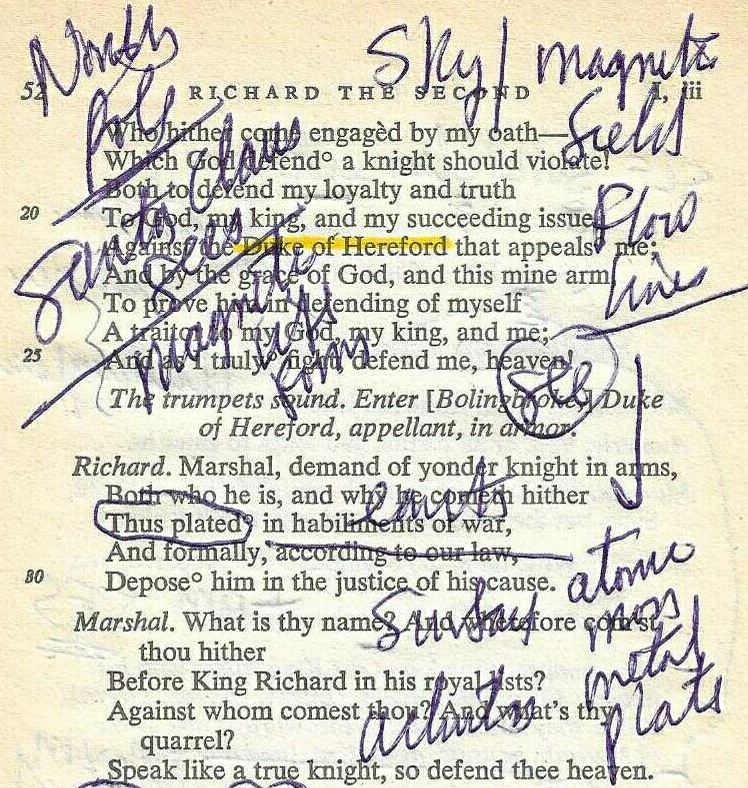 North
Pole
Sky / magnetic
field
52 RICHARD THE SECOND I, iii
Who hither come engagèd by my oath—
Which God defend° a knight should violate!
Both to defend my loyalty and truth
20 To God, my king, and my succeeding issue,
Against the Duke of Hereford that appeals° me;
And by the grace of God, and this mine arm,
To prove him, in defending of myself
A traitor to my God, my king, and me;
25 And as I truly° fight, defend me, heaven!
Santa Claus
sees
magnetic
life
forms
flow
lines
see
The trumpets sound. Enter [Bolingbroke,] Duke
of Hereford, appellant, in armor.
Richard. Marshal, demand of yonder knight in arms,
Both who he is, and why he cometh hither
Thus plated° in habiliments of war,
And formally, according to our law,
80 Depose° him in the justice of his cause.
earths
atomic
mass
metal
plate
Marshal. What is thy name? And wherefore com'st
thou hither
Before King Richard in his royal lists?
Against whom comest thou? And what's thy
quarrel?
Speak like a true knight, so defend thee heaven.